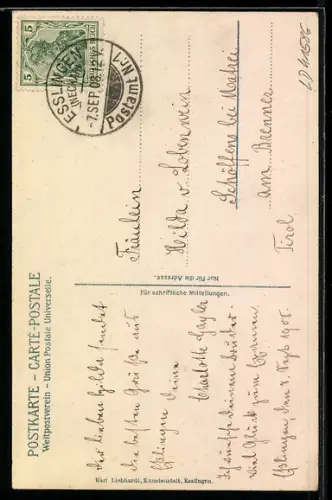 POSTKARTE – CARTE-POSTALE
Weltpostverein – Union Postale Universelle.
5 5
ESSLINGEN
(NECKAR)
-7.SEP 08.12-1.
Postamt Nr. 1
Für schriftliche Mitteilungen.
Nur für die Adresse.
Fräulein
Hilda v. Lobenwein
Schöffens bei Matrei
am Brenner
Tirol
Der lieben Hilda sendet
die besten Grüße aus
Esslingen Deine
Charlotte
Ich wünsche Deinem Bruder
viel Glück zum
Esslingen, den Sept. 1908.
Karl Liebhardt, Kunstanstalt, Esslingen.